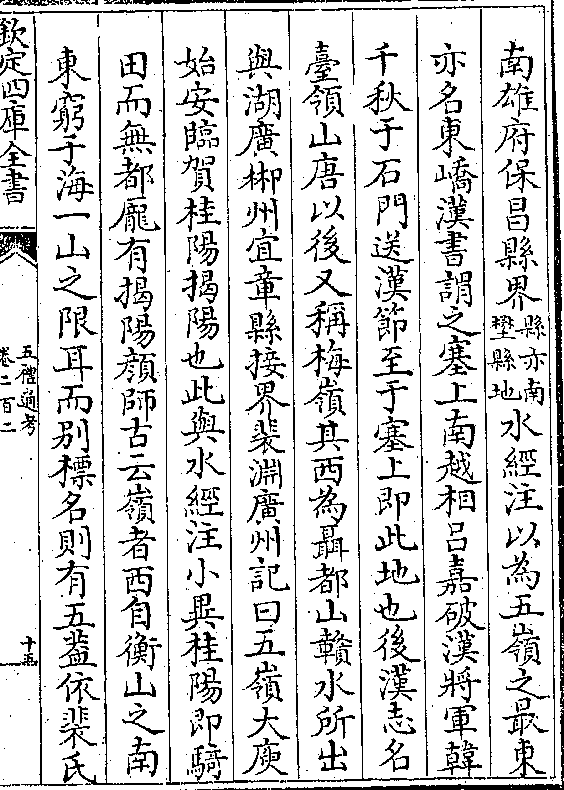 南雄府保昌縣界縣亦南壄縣地水經注以為五嶺之最東
亦名東嶠漢書謂之塞上南越相呂嘉破漢將軍韓
千秋于石門送漢節至于塞上即此地也後漢志名
臺領山唐以後又稱梅嶺其西為聶都山贛水所出
與湖廣郴州宜章縣接界裴淵廣州記曰五嶺大庾
始安臨賀桂陽揭陽也此與水經注小異桂陽即騎
田而無都龐有揭陽顔師古云嶺者西自衡山之南
東窮于海一山之限耳而别標名則有五葢依裴氏
欽定四庫全書
五禮通考
卷二百二
十五